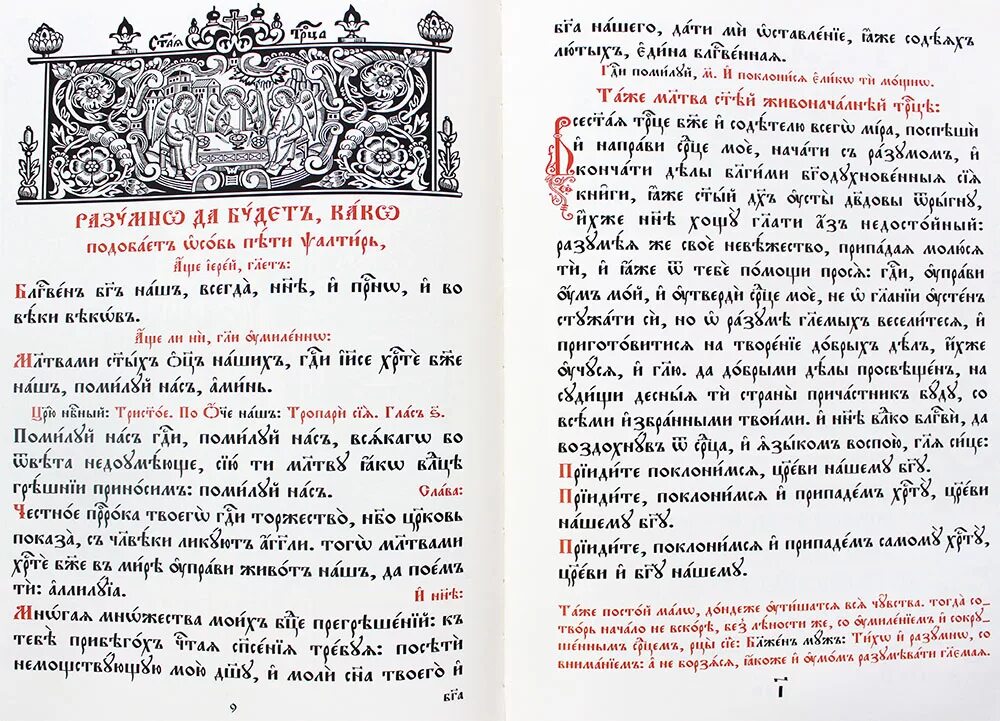 Ст҃ая Трⷪ҇ца
РАЗꙊ́МНѠ ДА БꙊ́ДЕТЪ, КА́КѠ
подоба́етъ ѡ҆со́бь пѣ́ти ѱалти́рь,
А҆́ще і҆ере́й, гл҃етъ:
Бл҃гве́нъ бг҃ъ на́шъ, всегда̀, нн҃ѣ, и҆ прⷭ҇нѡ, и҆ во
вѣ́ки вѣкѡ́въ.
А҆́ще ли нѝ, гл҃и ᲂу҆миле́ннѡ:
Мл҃твами ст҃ы́хъ ѻ҆ц҃ъ на́шихъ, гдⷭ҇и і҆и҃се хрⷭ҇тѐ бж҃е
на́шъ, поми́лꙋй на́съ, а҆ми́нь.
Цр҃ю̀ нбⷭ҇ный: Трист҃о́е. По Ѻ҆́ч҃е на́шъ: Тропарѝ сїѧ̀. Гла́съ ѕ҃.
Поми́лꙋй на́съ гдⷭ҇и, поми́лꙋй на́съ, всѧ́кагѡ бо
ѿвѣ́та недоꙋмѣ́юще, сїю̀ ти мл҃твꙋ ꙗ҆́кѡ влⷣцѣ
грѣ́шнїи прино́симъ: поми́лꙋй на́съ.
Сла́ва:
Честно́е прⷪ҇ро́ка твоегѡ̀ гдⷭ҇и торжество̀, нб҃о цр҃ковь
показа̀, съ чл҃вѣ́ки ликꙋ́ютъ а҆́гг҃ли. тогѡ̀ мл҃твами
хрⷭ҇тѐ бж҃е въ ми́рѣ ᲂу҆пра́ви живо́тъ на́шъ, да пое́мъ
тѝ: а҆ллилꙋ́їа.
И҆ нн҃ѣ:
Мнѡ́гаѧ мнѡ́жества мои́хъ бц҃е прегрѣше́нїй: къ
тебѣ̀ прибѣго́хъ чⷭ҇таѧ сп҃се́нїѧ тре́бꙋѧ: посѣтѝ
немощствꙋ́ющꙋю мою̀ дш҃ꙋ, и҆ молѝ сн҃а твоего̀ и҆
бг҃а
9
бг҃а на́шего, да́ти мѝ ѡ҆ставле́нїе, ꙗ҆́же содѣ́ѧхъ
лю́тыхъ, є҆ди́на блгⷭ҇ве́ннаѧ.
Гдⷭ҇и поми́лꙋй, м҃. И҆ поклони́сѧ є҆ли́кѡ тѝ мо́щнѡ.
Та́же мл҃тва ст҃ѣ́й живонача́лнѣй трⷪ҇цѣ:
Всест҃а́ѧ трⷪ҇це бж҃е и҆ содѣ́телю всегѡ̀ мі́ра, поспѣшѝ
и҆ напра́ви срⷣце моѐ, нача́ти съ ра́зꙋмомъ, и҆
конча́ти дѣ́лы бл҃ги́ми бг҃одꙋхнове́нныѧ сїѧ̀
кни́ги, ꙗ҆́же ст҃ы́й дх҃ъ ᲂу҆сты̀ дв҃довы ѿры́гнꙋ,
и҆́хже нн҃ѣ хощꙋ̀ гл҃ати а҆́зъ недосто́йный:
разꙋмѣ́ѧ же своѐ невѣ́жество, припа́даѧ молю́сѧ
тѝ, и҆ ꙗ҆́же ѿ тебѐ по́мощи просѧ̀: гдⷭ҇и, ᲂу҆пра́ви
ᲂу҆́мъ мо́й, и҆ ᲂу҆твердѝ срⷣце моѐ, не ѡ҆ гл҃а́нїи ᲂу҆сте́нъ
стꙋжа́ти сѝ, но ѡ҆ ра́зꙋмѣ гл҃емыхъ весели́тисѧ, и҆
пригото́витисѧ на творе́нїе до́брыхъ дѣ́лъ, и҆́хже
ᲂу҆чꙋ́сѧ, и҆ гл҃ю. да до́брыми дѣ́лы просвѣще́нъ, на
сꙋди́щи десны́ѧ тѝ страны̀ прича́стникъ бꙋ́дꙋ, со
всѣ́ми и҆збра́нными твои́ми. и҆ нн҃ѣ влⷣко блгⷭ҇вѝ, да
воздохнꙋ́въ ѿ срⷣца, и҆ ѧ҆зы́комъ воспою̀, гл҃ѧ си́це:
Прїиди́те поклони́мсѧ, цр҃е́ви на́шемꙋ бг҃ꙋ.
Прїиди́те, поклони́мсѧ и҆ припаде́мъ хрⷭ҇тꙋ̀, цр҃е́ви
на́шемꙋ бг҃ꙋ.
Прїиди́те, поклони́мсѧ и҆ припаде́мъ самомꙋ̀ хрⷭ҇тꙋ̀,
цр҃е́ви и҆ бг҃ꙋ на́шемꙋ.
Та́же посто́й ма́лѡ, до́ндеже ᲂу҆тиша́тсѧ всѧ̀ чꙋ́вства. тогда̀ со-
тво́рь нача́ло не вско́рѣ, без̾ лѣ́ности же, со ᲂу҆миле́нїемъ и҆ сокрꙋ-
ше́ннымъ срⷣцемъ, рцы̀ сїѐ: Бл҃же́нъ мꙋ́жъ: Ти́хѡ и҆ разꙋ́мнѡ, со
внима́нїемъ: а҆ не борзѧ́сѧ, ꙗ҆́коже и҆ ᲂу҆мо́мъ разꙋмѣва́ти гл҃емаѧ.
І҃